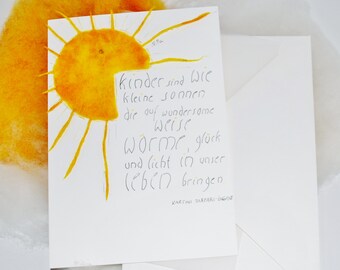 kinder sind wie
kleine sonnen
die auf wundersame
weise
wärme, glück
und licht in unser
leben bringen